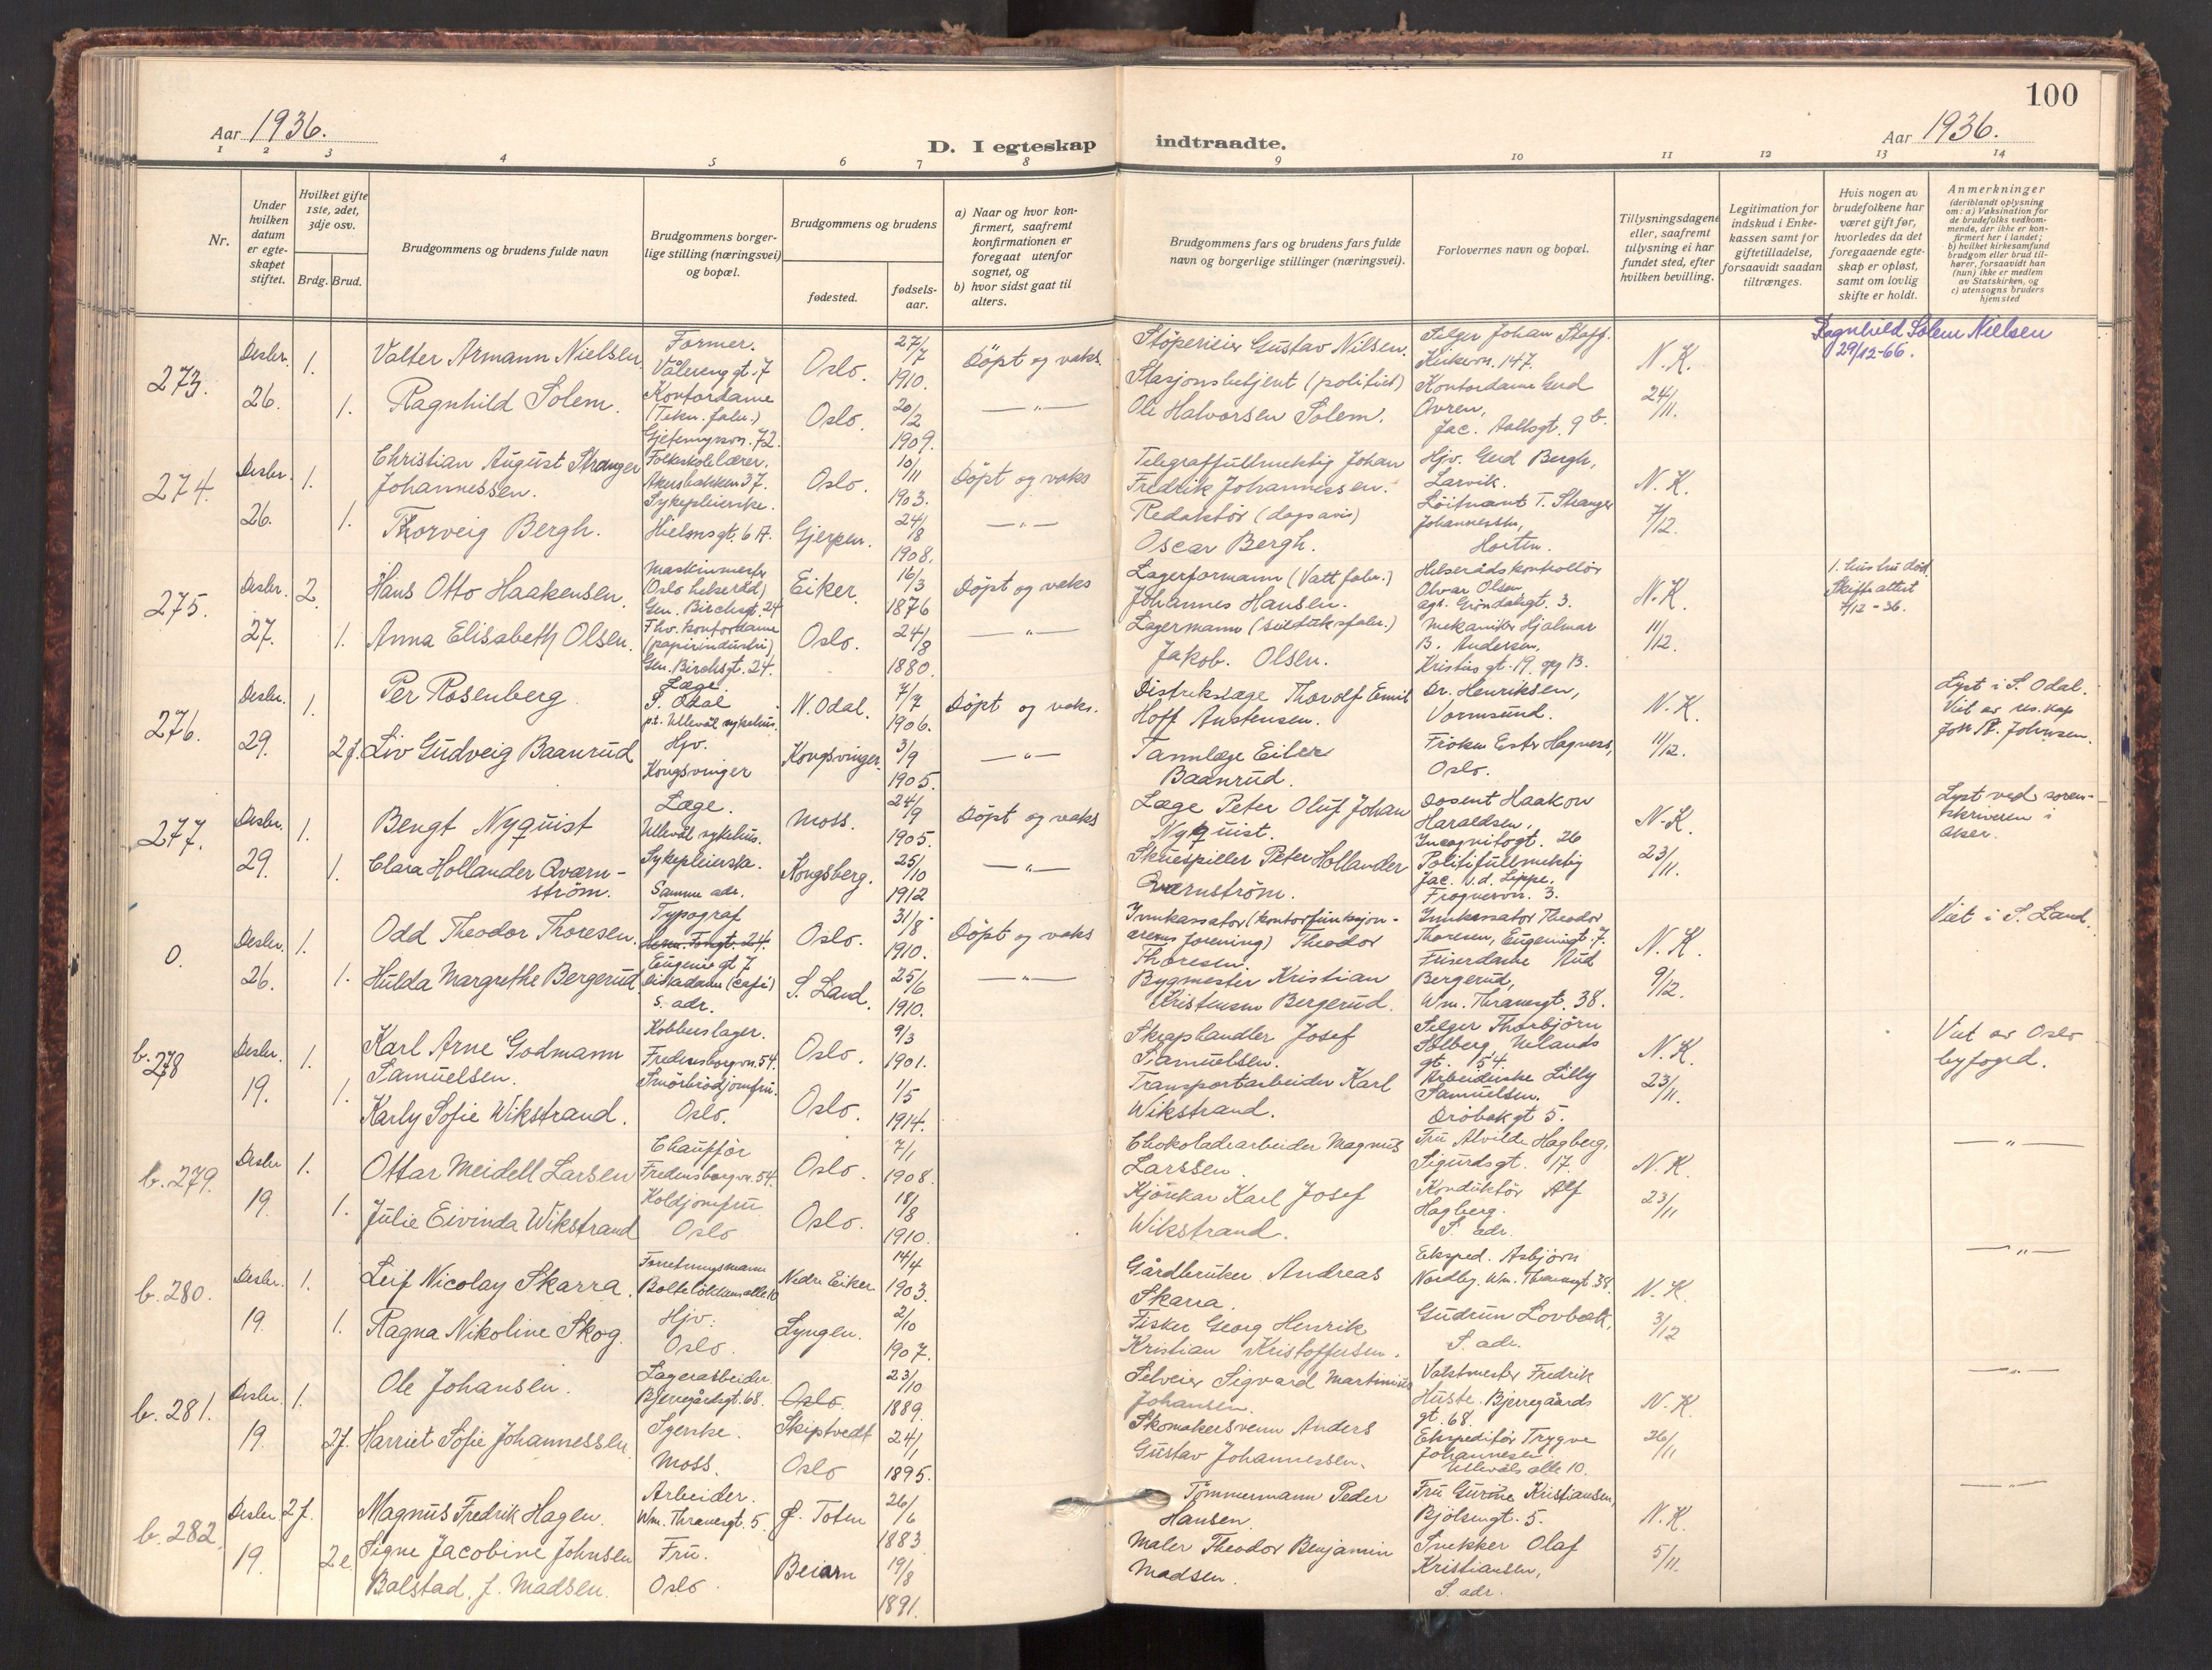 100
Aar 1936.
D. I egteskap indtraadte.
Aar 1936.
1 2 3 4 5 6 7 8 9 10 11 12 13 14
Nr.
Under hvilken datum er egteskapet stiftet.
Hvilket gifte 1ste, 2det, 3dje osv.
Brdg. Brud.
Brudgommens og brudens fulde navn
Brudgommens borgerlige stilling (næringsvei) og bopæl.
Brudgommens og brudens
fødested.
fødselsaar.
a) Naar og hvor konfirmert, saafremt konfirmationen er foregaat utenfor sognet, og
b) hvor sidst gaat til alters.
Brudgommens fars og brudens fars fulde navn og borgerlige stillinger (næringsvei).
Forlovernes navn og bopæl.
Tillysningsdagene eller, saafremt tillysning ei har fundet sted, efter hvilken bevilling.
Legitimation for indskud i Enkekassen samt for giftetilladelse, forsaavidt saadan tiltrænges.
Hvis nogen av brudefolkene har været gift før, hvorledes da det foregaaende egteskap er opløst, samt om lovlig skifte er holdt.
Anmerkninger
(deriblandt oplysning om: a) Vaksination for de brudefolks vedkommende, der ikke er konfirmert her i landet; b) hvilket kirkesamfund brudgom eller brud tilhører, forsaavidt han (hun) ikke er medlem av Statskirken, og c) utensogns bruders hjemsted
273.
Desbr. 26.
1.
Valter Armann Nielsen.
Former.
Vålereng gt. 7
Oslo.
27/7 1910.
Döpt og vaks.
Støperieier Gustav Nilsen.
Selger Johan Staff.
Kirkevn. 147.
N.K.
24/11.
Ragnhild Solem Nielsen
29/12-66.
1.
Ragnhild Solem.
Kontordame
(Tekn. fabr.)
Gjetemyrsvn. 72.
Oslo.
20/2 1909.
— " —
Stasjonsbetjent (politiet)
Ole Halvorsen Solem.
Kontordame Gerd
Ovren,
Jac. Aallsgt. 9 b.
274.
Desbr. 26.
1.
Christian August Stranger
Johannessen.
Folkeskolelærer.
Akersbakken 37.
Oslo.
10/11 1903.
Döpt og vaks
Telegraffullmektig Johan
Fredrik Johannessen.
Hjv. Gerd Bergh,
Larvik.
N.K.
7/12.
1.
Thorveig Bergh.
Sykepleierske.
Hielmsgt. 6 A.
Gjerpen.
24/8 1908.
— " —
Redaktör (dagsavis)
Oscar Bergh.
Löitnant T. Stranger
Johannessen,
Horten.
275.
Desbr. 27.
2.
Hans Otto Haakensen.
Maskinmester
(Oslo helseråd)
Gen. Birchsgt. 24
Eiker.
16/3 1876
Döpt og vaks
Lagerformann (Vattfabr.)
Johannes Hansen.
Helserådskontrollör
Olvar Olsen,
Ags. Gröndalsgt. 3.
N.K.
11/12.
1. hustru död.
Skifteattest
4/12-36.
1.
Anna Elisabeth Olsen.
Fhv. kontordame
(papirindustri)
Gen. Birchsgt. 24.
Oslo.
24/8 1880.
— " —
Lagermann (seildukfabr.)
Jakob. Olsen.
Mekaniker Hjalmar
B. Andersen,
Kristus gt. 19. opg B.
276.
Desbr. 29.
1.
Per Rosenberg
Læge.
S. Odal
p.t. Ullevål sykehus.
N. Odal.
7/7 1906.
Döpt og vaks.
Distriktslæge Thorolf Emil
Hoff Anstensen.
Dr. Henriksen,
Vormsund.
N.K.
11/12.
Lyst i S. Odal.
Viet av res. kap
Joh. Johnsen.
2 f.
Liv Gudveig Baanrud
Hjv.
Kongsvinger
Kongsvinger.
3/9 1905.
— " —
Tannlæge Eiler
Baanrud.
Fröken Ester Hagness,
Oslo.
277.
Desbr. 29.
1.
Bengt Nyquist
Læge.
Ullevål sykehus.
Moss.
24/9 1905.
Döpt og vaks
Læge Peter Oluf Johan
Nyquist.
Dosent Haakon
Haraldsen,
Incognitogt. 26
N.K.
23/11.
Lyst ved sorenskriveren i
Aker.
1.
Clara Hollander Qværnström.
Sykepleierske.
Samme adr.
Kongsberg.
25/10 1912
— " —
Skuespiller Peter Hollander
Qvarnström.
Politifullmektig
Jac. v.d. Lippe.
Frognervn. 3.
0.
Desbr. 26.
1.
Odd Theodor Thoresen.
Typograf
Herm. Fossgt. 24.
Eugenie gt 7
Oslo.
31/8 1910.
Döpt og vaks
Innkassator (kontorfunksjonærenes forening) Theodor
Thoresen
Innkassator Theodor
Thoresen, Eugeniegt. 7.
N.K.
9/12.
Viet i S. Land.
1.
Hulda Margrethe Bergerud
S. adr.
S. Land.
25/6 1910.
— " —
Bygmester Kristian
Kristensen Bergerud.
Friserdame Rud
Bergerud,
Wm. Thranesgt. 38.
b. 278
Desbr. 19.
1.
Karl Arne Godmann
Samuelsen.
Kobberslager.
Fredensborgvn. 54.
Oslo.
9/3 1901.
Skraphandler Josef
Samuelsen.
Selger Thorbjörn
Solberg, Uelands
gt. 54.
N.K.
23/11.
Viet av Oslo
byfogd.
1.
Karly Sofie Wikstrand.
Smörbrödjomfru.
Oslo.
Oslo.
1/5 1914.
Transportarbeider Karl
Wikstrand.
Arbeiderske Lilly
Samuelsen.
Dröbakgt 5.
b. 279.
Desbr 19.
1.
Ottar Meidell Larsen
Chauffør
Fredensborgvn. 54.
Oslo.
7/1 1908.
Chokoladearbeider Magnus
Larssen.
Fru Alvilde Hagberg,
Sigurdsgt. 17.
N.K.
23/11
— " —
1.
Julie Eivinda Wikstrand
Koldjomfru
Oslo
Oslo.
18/8 1910.
Kjörekar Karl Josef
Wikstrand.
Konduktör Alf
Hagberg.
S. adr.
b. 280.
Desbr. 19.
1.
Leif Nicolay Skarra.
Forretningsmann
Bolteløkkens alle 10
Nedre Eiker.
14/4 1903.
Gårdbruker Andreas
Skarra.
Eksped. Asbjörn
Nordby, Wm. Thranesgt. 38.
N.K.
3/12
— " —
1.
Ragna Nikoline Skog.
Hjv.
Oslo.
Lyngen.
2/10 1907.
Fisker Georg Henrik
Kristian Kristoffersen.
Gudrun Lovbakk,
S. adr.
b. 281.
Desbr. 19.
1.
Ole Johansen.
Lagerarbeider.
Bjerregårdsgt. 68.
Oslo.
Skiptvedt
23/10 1889.
Selveier Sigvard Martinius
Johansen.
Vaktmester Fredrik
Huste. Bjerregaards
gt. 68.
N.K.
26/11
— " —
2 f.
Harriet Sofie Johannessen
Syerske.
Moss.
Oslo
24/1 1895.
Skomakersvenn Anders
Gustav Johannessen.
Ekspeditör Trygve
Johannesen
Ullevåls alle 10.
b. 282.
Desbr. 19.
2 f.
Magnus Fredrik Hagen.
Arbeider.
Wm. Thranesgt. 5.
Ø. Toten
26/6 1883
Tömmermann Peder
Hansen.
Fru Gurine Kristiansen,
Bjölsengt. 5.
N.K.
5/11.
— " —
2 e.
Signe Jacobine Johnsen
Balstad, f. Madsen.
Fru.
Oslo.
Beiarn
19/8 1891.
Maler Theodor Benjamin
Madsen.
Snekker Olaf
Kristiansen,
S. adr.